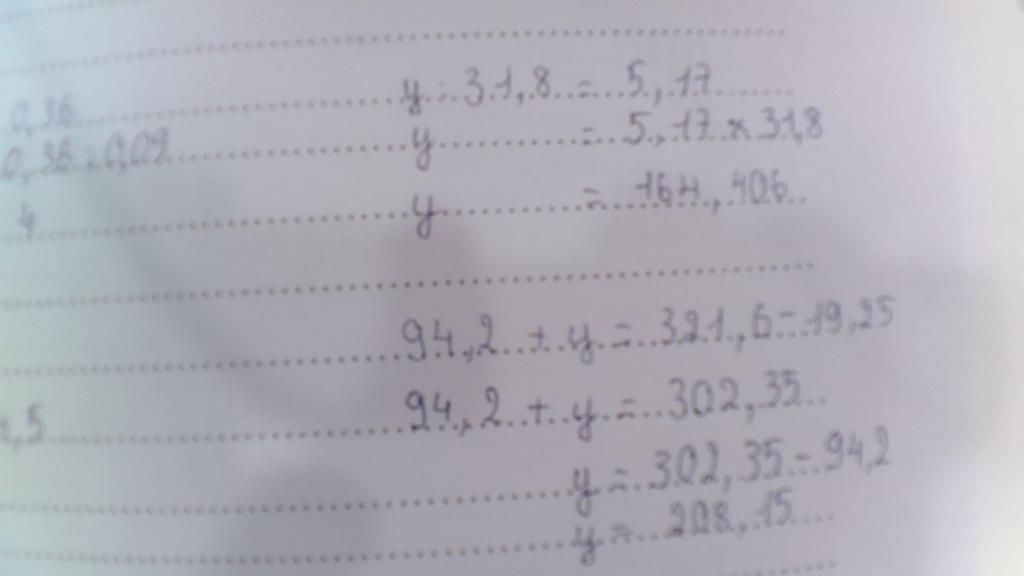 0,36 y : 31,8 = 5,17
0,36 : 0,09 y = 5,17 x 31,8
4 y = 164,406
94,2 + y = 321,6 - 19,25
,5 94,2 + y = 302,35
y = 302,35 - 94,2
y = 208,15